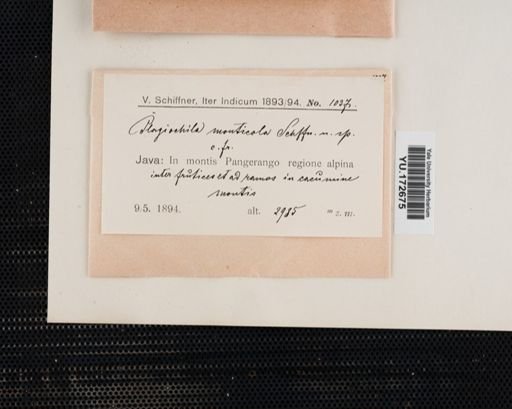 V. Schiffner, Iter Indicum 1893/94. No. 1037.
Plagiochila monticola Schffn. n. sp.
c. fr.
Java: In montis Pangerango regione alpina
inter frutices et ad ramos in cacumine
montis
9.5. 1894. alt. 2985 m s. m.
Yale University Herbarium
YU.172675